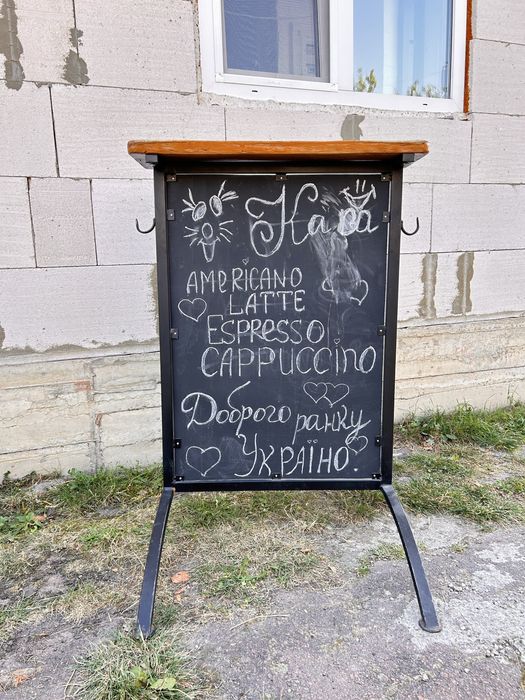 Кава
AMERICANO
LATTE
ESPRESSO
CAPPUCCINO
Доброго ранку
УКРАЇНО!